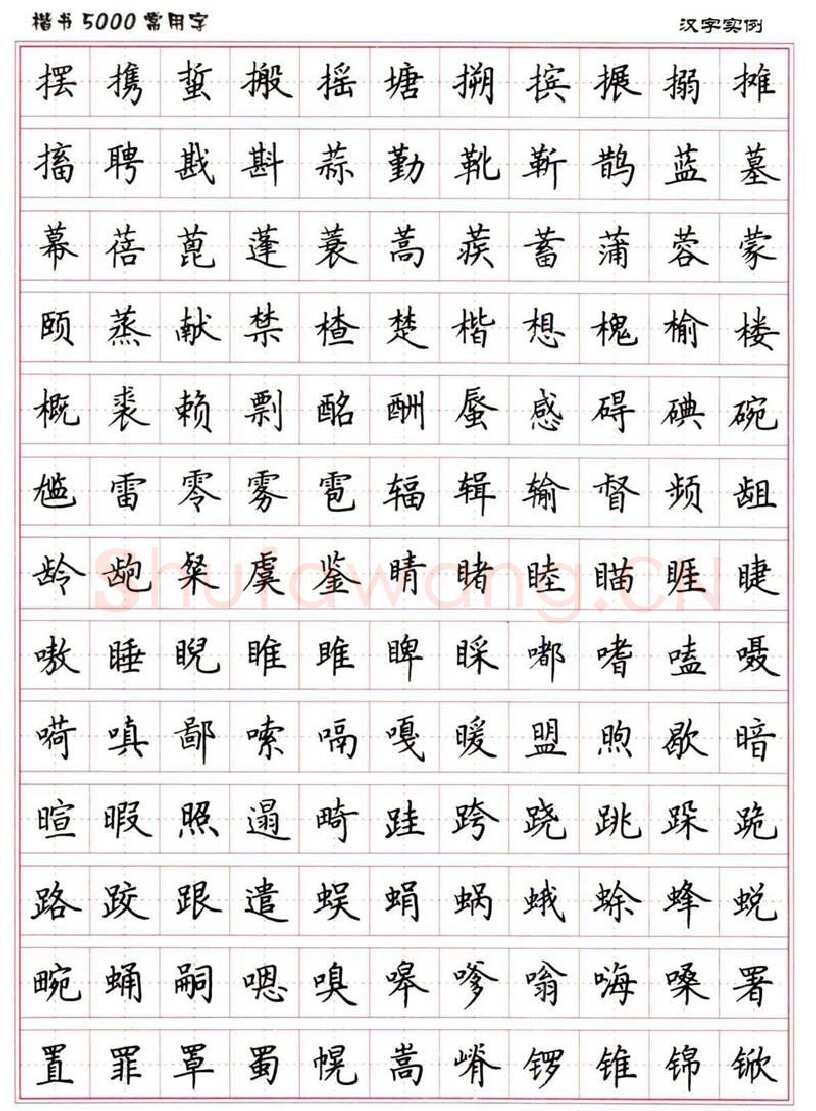 楷书5000常用字 汉字实例
摆携蜇搬摇塘搠摈搌搦摊
搐聘戡斟蒜勤靴靳鹊蓝墓
幕蓓蓖蓬蓑蒿蒺蓄蒲蓉蒙
颐蒸献禁楂楚楷想槐榆楼
概裘赖剽酩酬蜃感碍碘碗
尴雷零雾雹辐辑输督频龃
龄龅粲虞鉴睛睹睦瞄睚睫
嗷睡睨睢雎睥睬嘟嗜嗑嗫
嗬嗔鄙嗦嗝嘎暖盟煦歇暗
暄暇照遢畸跬跨跷跳跺跪
路跤跟遣蜈蜗蛾蜍蜂蜕
畹蛹嗣嗯嗅嗥嗲嗡嗨嗓署
置罪罩蜀幌嵩嵴锣锥锦锨
Shufawang.CN